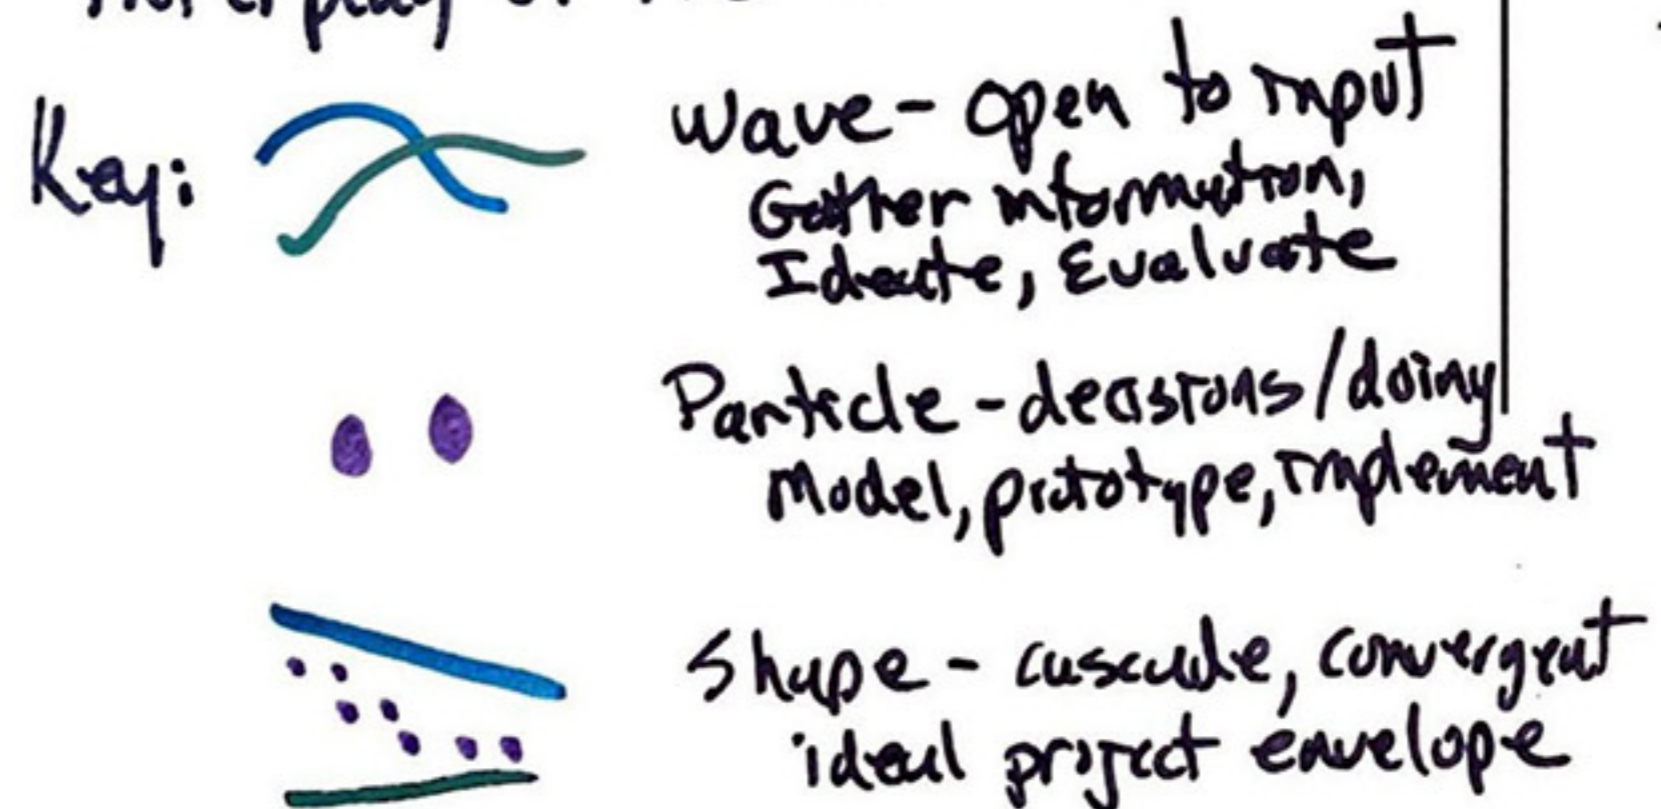 interplay of
Key:
Wave - open to input
Gather information,
Ideate, Evaluate
Particle - decisions/doing
Model, prototype, implement
Shape - cascade, convergent
ideal project envelope